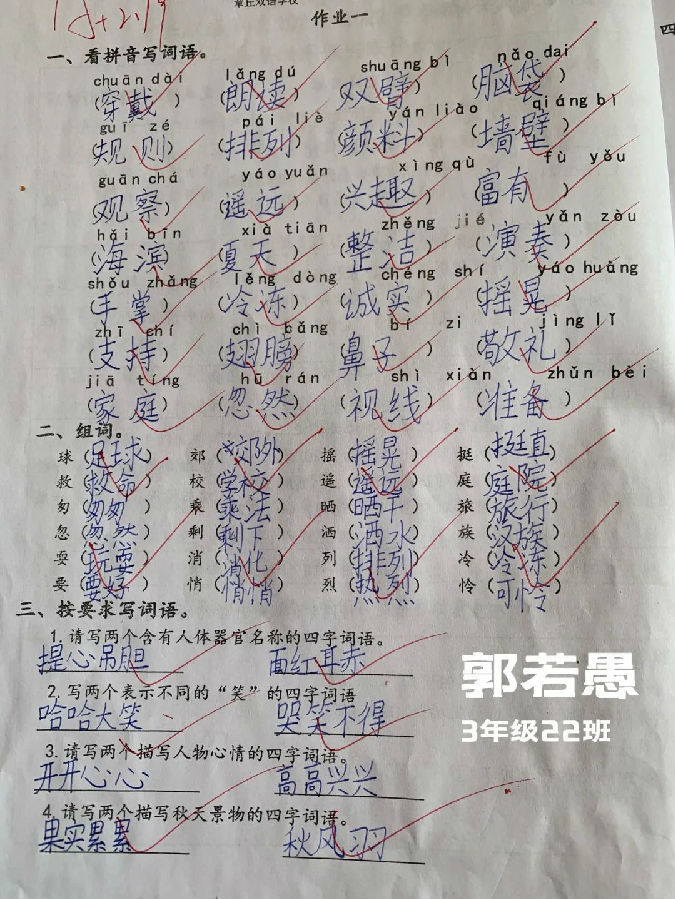 章丘双语学校
作业一
四
一、看拼音写词语。
chuān dài lǎng dú shuāng bì nǎo dai
(穿戴) (朗读) (双臂) (脑袋)
guī zé pái liè yán liào qiáng bì
(规则) (排列) (颜料) (墙壁)
guān chá yáo yuǎn xìng qù fù yǒu
(观察) (遥远) (兴趣) (富有)
hǎi bīn xià tiān zhěng jié yǎn zòu
(海滨) (夏天) (整洁) (演奏)
shǒu zhǎng lěng dòng chéng shí yáo huàng
(手掌) (冷冻) (诚实) (摇晃)
zhī chí chì bǎng bí zi jìng lǐ
(支持) (翅膀) (鼻子) (敬礼)
jiā tíng hū rán shì xiàn zhǔn bèi
(家庭) (忽然) (视线) (准备)
二、组词。
球(足球) 郊(郊外) 摇(摇晃) 挺(挺直)
救(救命) 校(学校) 遥(遥远) 庭(庭院)
匆(匆匆) 乘(乘法) 晒(晒干) 旅(旅行)
忽(忽然) 剩(剩下) 洒(洒水) 族(汉族)
耍(玩耍) 消(消化) 列(排列) 冷(冷冻)
要(要好) 悄(悄悄) 烈(热烈) 怜(可怜)
三、按要求写词语。
1.请写两个含有人体器官名称的四字词语。
提心吊胆 面红耳赤
2.写两个表示不同的“笑”的四字词语
哈哈大笑 哭笑不得
3.请写两个描写人物心情的四字词语。
开开心心 高高兴兴
4.请写两个描写秋天景物的四字词语。
果实累累 秋风羽
郭若愚
3年级22班